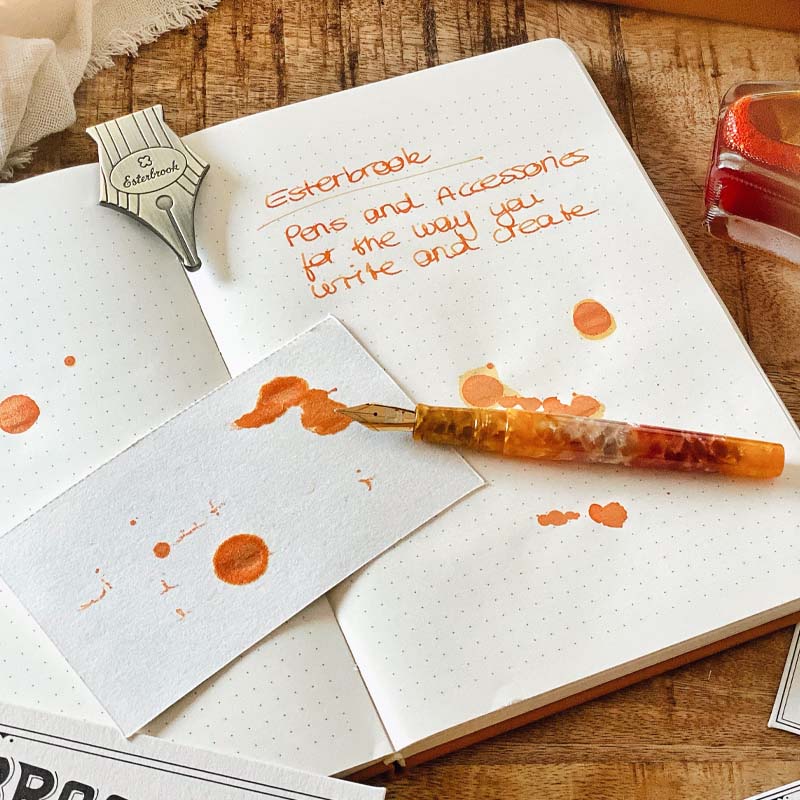 Esterbrook
Esterbrook
Pens and Accessories
for the way you
write and create